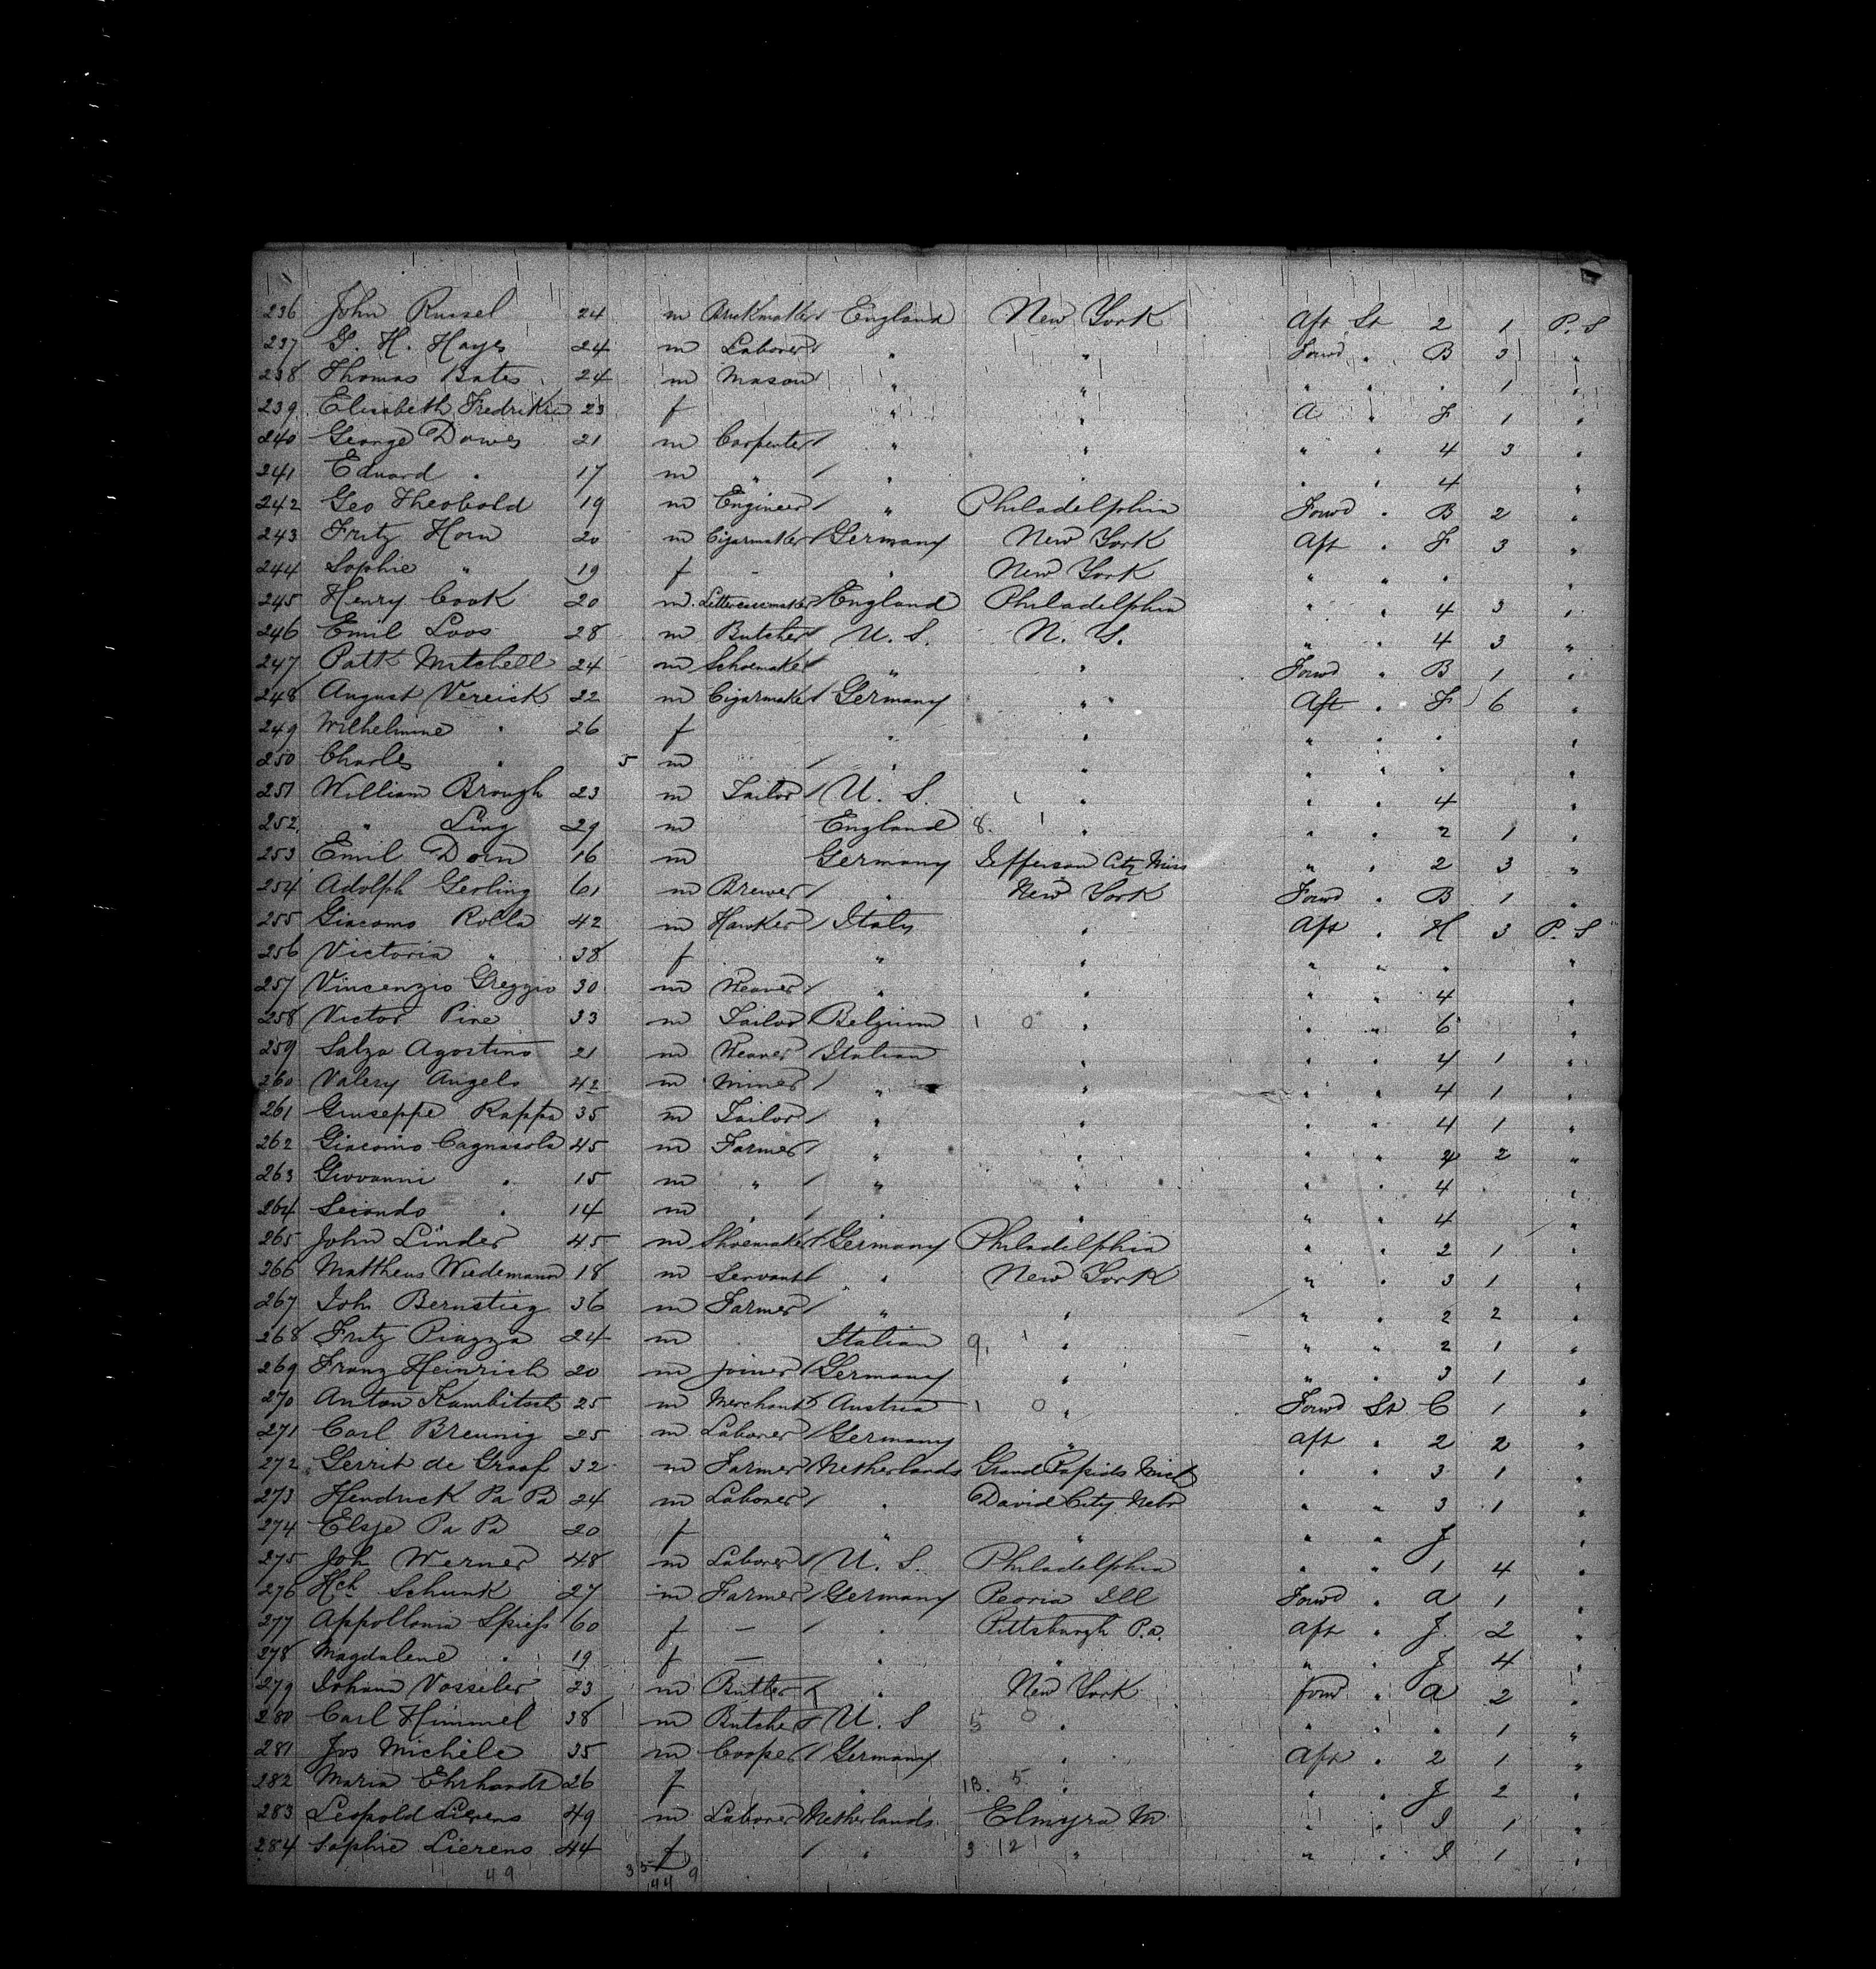 236 John Russel 24 m England New York Aft St 2 1 P. S
237 H. Hayes 24 m Laborer " " Forwd " B 3 "
238 Thomas Bates 24 m Mason " " " " " 1 "
239 Elisabeth 23 f " " A " F 1 "
240 George Dawes 21 m Carpenter " " " " 4 3 "
241 Eduard " 17 m " " " " " 4 "
242 Geo Theobold 19 m Engineer " Philadelphia Forwd " B 2 "
243 Fritz Horn 20 m Cigarmaker Germany New York Aft " F 3 "
244 Sophie " 19 f - " New York " " " "
245 Henry Cook 20 m England Philadelphia " " 4 3 "
246 Emil Loos 28 m Butcher U. S. N. Y. " " 4 3 "
247 Patk Mitchell 24 m Schoemaker " " Forwd " B 1 "
248 August Vereick 22 m Cigarmaker Germany " Aft " F 6 "
249 Wilhelmine " 26 f " " " " " "
250 Charles " 5 m " " " " " "
251 William Brough 23 m Tailor U. S. " " " 4 "
252 " Ling 29 m England 8. " " " 2 1 "
253 Emil Dorn 16 m Germany Jefferson City Miss " " 2 3 "
254 Adolph Gerling 61 m Brewer " New York Forwd " B 1 "
255 Giacomo Rolla 42 m Hawker Italy " Aft " H 3 P. S
256 Victoria " 38 f " " " " " "
257 Vincenzio Greggio 30 m Weaver " " " " 4 "
258 Victor Pire 33 m Tailor Belgium 1 0 " " " 6 "
259 Salza Agostino 21 m Weaver Italian " " " 4 1 "
260 Valery Angelo 42 m Miner " " " " 4 1 "
261 Giuseppe Rappa 35 m Tailor " " " " 4 1 "
262 Giacomo Cagnasola 45 m Farmer " " " " 4 2 "
263 Giovanni " 15 m " " " " " 4 "
264 Secondo " 14 m " " " " " 4 "
265 John Linder 45 m Shoemaker Germany Philadelphia " " 2 1 "
266 Mattheus Wiedemann 18 m Servant " New York " " 3 1 "
267 Joh Bernstieg 36 m Farmer " " " " 2 2 "
268 Fritz Piazza 24 m Italian 9. " " " 2 1 "
269 Franz Heinrich 20 m joiner Germany " " " 3 1 "
270 Anton Kambitsch 25 m Merchant Austria 1 0 " Forwd St C 1 "
271 Carl Breunig 25 m Laborer Germany " Aft " 2 2 "
272 Gerrit de Graaf 32 m Farmer Netherlands Grand Rapids Mich " " 3 1 "
273 Hendrick Pa Pa 24 m Laborer " David City Nebr " " 3 1 "
274 Elsje Pa Pa 20 f " " " " J "
275 Joh Werner 48 m Laborer U. S. Philadelphia " " 1 4 "
276 Hch Schunk 27 m Farmer Germany Peoria Ill Forwd " a 1 "
277 Appollonia Spiess 60 f - " Pittsburgh P.a. Aft " J 2 "
278 Magdalene " 19 f - " " " " J 4 "
279 Johann Vosseler 23 m Butler " New York forwd " a 2 "
280 Carl Himmel 38 m Butcher U. S 5 0 " " " " 1 "
281 Jos Michele 35 m Cooper Germany " Aft " 2 1 "
282 Maria Ehrhardt 26 f " 1B. 5 " " " J 2 "
283 Leopold Lierens 49 m Laborer Netherlands Elmyra " " J 1 "
284 Sophie Lierens 44 f " 3 12 " " " J 1 "
49 35 9
44